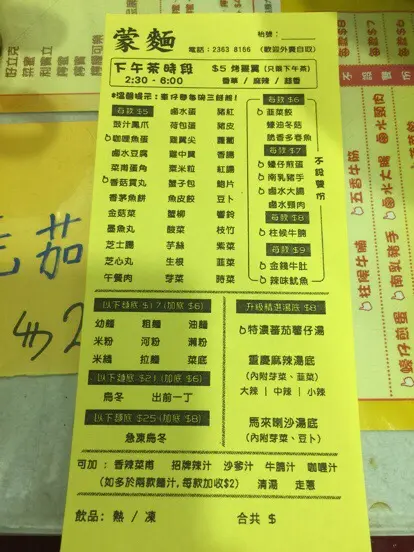 蒙麵
枱號：
電話：2363 8166 (歡迎外賣自取)
下午茶時段
2:30 - 6:00
$5 烤雞翼 (只限下午茶)
香草 / 麻辣 / 蒜香
每款$5 鹵水蛋 豬紅
豉汁鳳爪 荷包蛋 豬皮
咖喱魚蛋 雞翼尖 蘿蔔
鹵水豆腐 雞中翼 香腸
菜肉蛋角 粟米粒 紅腸
香菇貢丸 蟹子包 鮑片
香茅魚餅 魚皮餃 豆卜
金菇菜 蟹柳 響鈴
墨魚丸 酸菜 枝竹
芝士腸 芋絲 紫菜
芝心丸 生根 韮菜
午餐肉 芽菜 時菜
每款$6
韮菜餃
蠔油冬菇
脆香多春魚
每款$7
蠔仔煎蛋
南乳豬手
鹵水大腸
鹵水頸肉
每款$8
柱候牛腩
每款$9
金錢牛肚
辣味魷魚
不設雙份
以下麵底 $17(加底 $6)
幼麵 粗麵 油麵
米粉 河粉 瀨粉
米線 拉麵 菜底
以下麵底 $21(加底 $6)
烏冬 出前一丁
以下麵底 $25(加底 $8)
急凍烏冬
升級精選湯底 $8
特濃蕃茄薯仔湯
重慶麻辣湯底
(內附芽菜、韮菜)
大辣 | 中辣 | 小辣
馬來喇沙湯底
(內附芽菜、豆卜)
可加：香辣菜甫 招牌辣汁 沙爹汁 牛腩汁 咖喱汁
(如多於兩款醬汁,每款加收$2) 清湯 走蔥
飲品：熱 / 凍 合共 $
不同雙份
五香牛筋
鹵水大腸
鹵水頸肉
柱候牛腩
南乳豬手
蠔仔煎蛋